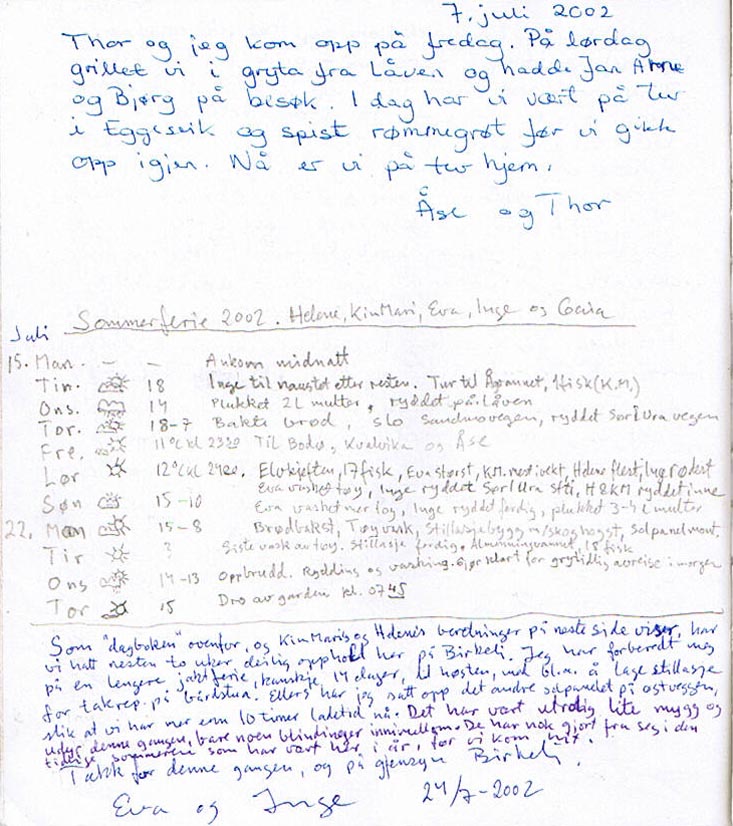 7. juli 2002
Thor og jeg kom opp på fredag. På lørdag
grillet vi i gryta fra Låven og hadde Jan Arne
og Bjørg på besøk. I dag har vi vært på tur
i Eggesvik og spist rømmegrøt før vi gikk
opp igjen. Nå er vi på tur hjem.
Åse og Thor
Sommerferie 2002. Helene, KinMari, Eva, Inge og Caira
Juli
15. Man - - Ankom midnatt
Tir. 18 Inge til naustet etter resten. Tur til 1 fisk (K.M.)
Ons. 14 Plukket 2L multer, ryddet på låven
Tor. 18-7 Bakte brød, slo Sandmovegen, ryddet SørlURA vegen
Fre. 11°C kl 2320 Til Bodø, Kvalvika og Åse
Lør 12°C kl 2420. Elvkjeften, 17 fisk, Eva størst, KM. mest i vekt, Helene flest, Inge rødest
Søn 15-10 Eva vasket tøy, Inge ryddet SørlURA sti, H&KM ryddet inne
Eva vasket mer tøy, Inge ryddet ferdig, plukket 3-4 L multer
22. Man 15-8 Brødbakst, Tøyvask, Stillasjebygg m/skoghogst, Solpanelmont.
Tir ? Siste vask av tøy. Stillasje ferdig, Almenningsvannet, 18 fisk
Ons 14-13 Oppbrudd. Rydding og vasking. Gjør klart for grytidlig avreise i morgen
Tor 15 Dro av garden kl. 0745
Som "dagboken" ovenfor, og KinMaris og Helenes beretninger på neste side viser, har
vi hatt nesten to uker deilig opphold her på Birkeli. Jeg har forberedt meg
på en lengere jaktferie, kanskje 14 dager, til høsten, med bl.a. å lage stillasje
for takrep. på bårdstua. Ellers har jeg satt opp det andre solpanelet på østveggen,
slik at vi har mer enn 10 timer ladetid nå. Det har vært utrolig lite mygg og
denne gangen, bare noen blindinger innimellom. De har nok gjort fra seg i den
sommeren som har vært her i år, før vi kom hit.
Takk for denne gangen, og på gjensyn Birkeli.
Eva og Inge 24/7-2002